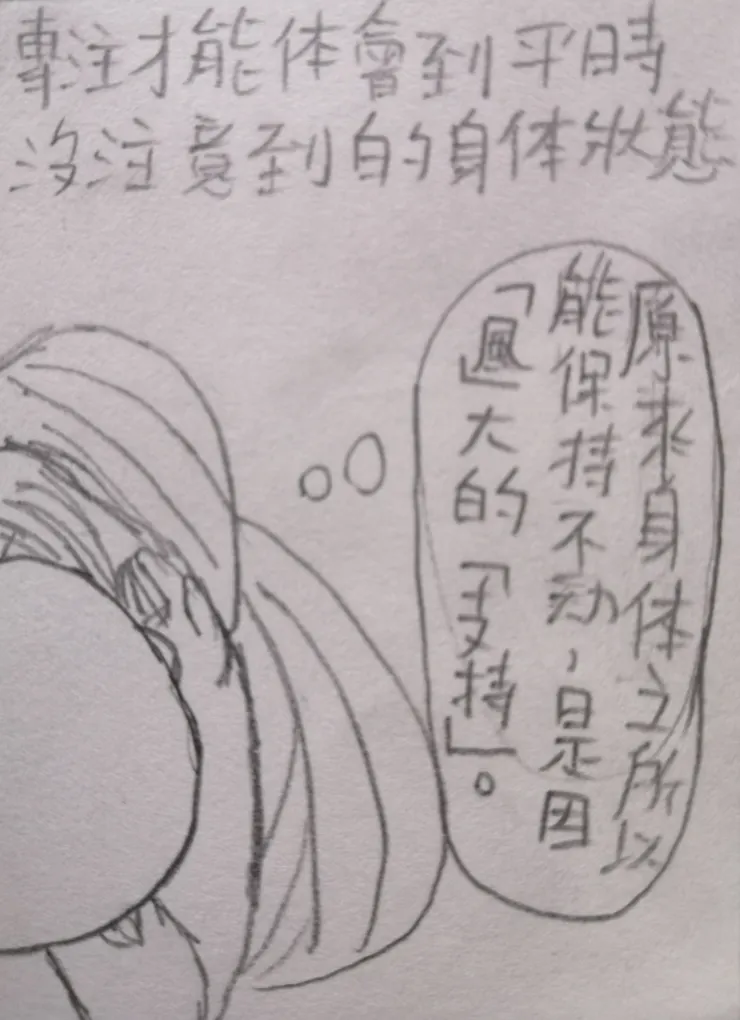 專注才能体會到平時
沒注意到的身体狀態
原來身体之所以
能保持不動,是因
「風」大的「支持」。